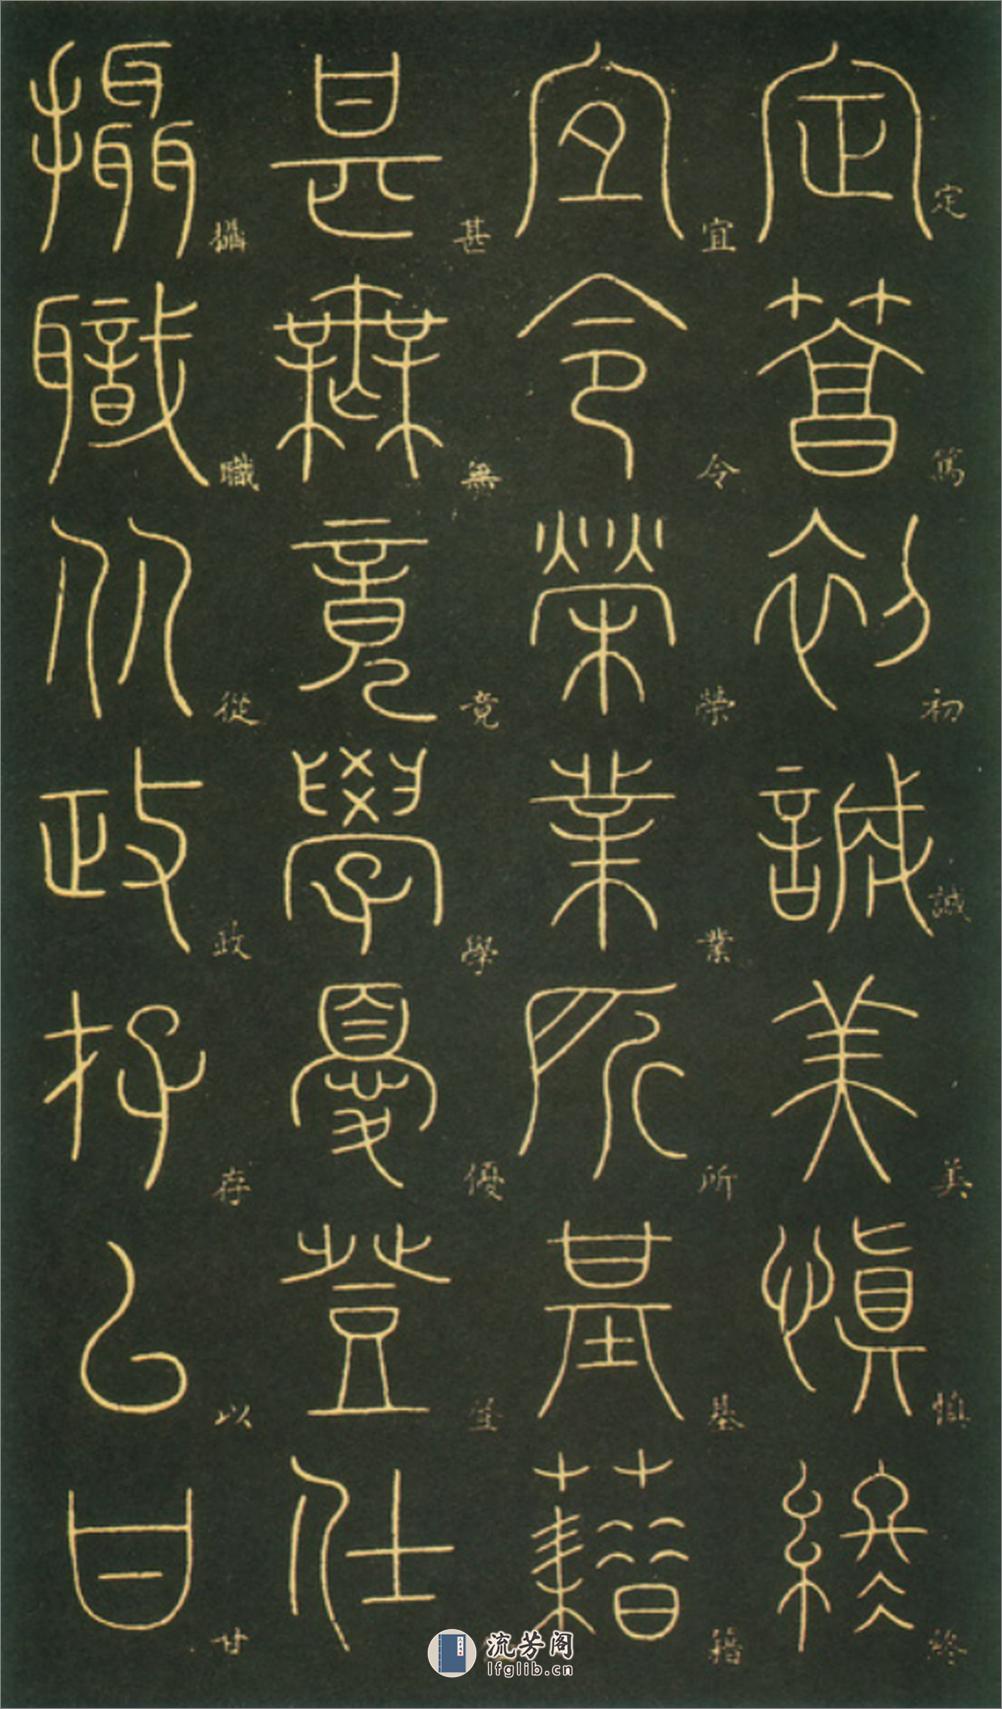 定篤初誠美慎終
宜令榮業所基籍
甚無竟學優登仕
攝職從政存以甘
流芳阁
lfglib.cn